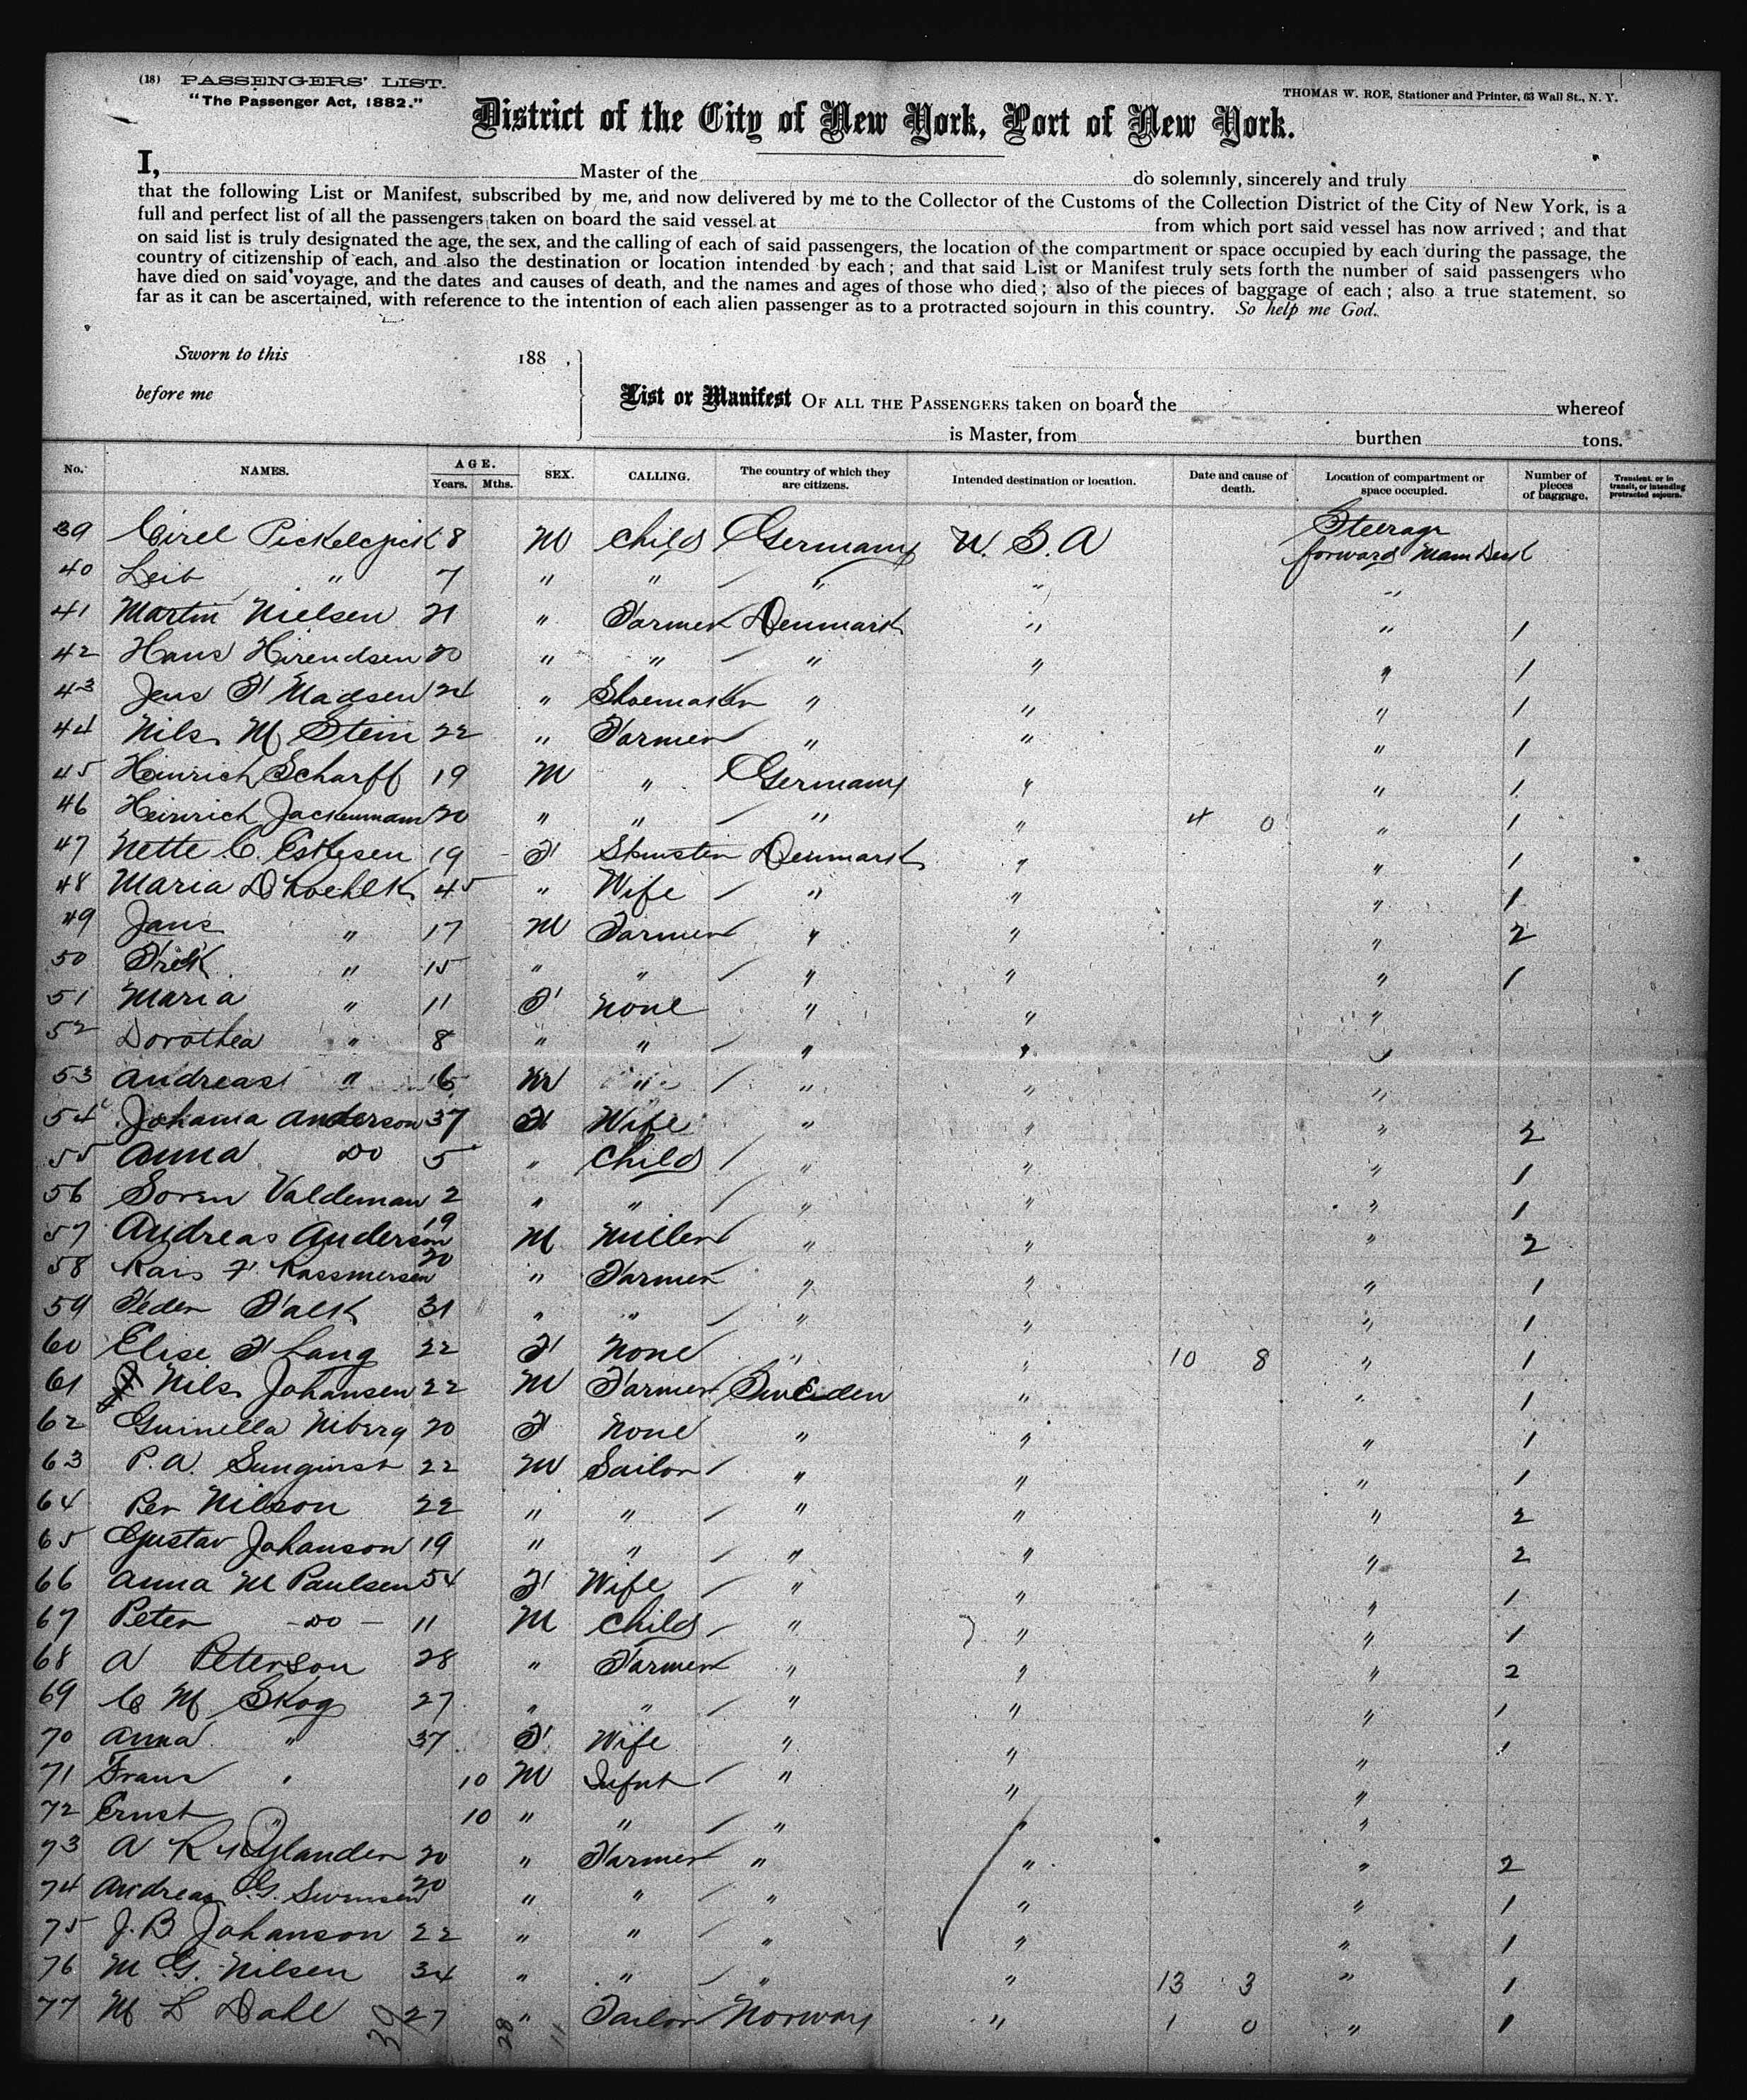 (18) PASSENGERS' LIST.
"The Passenger Act, 1882."
THOMAS W. ROE, Stationer and Printer, 63 Wall St., N. Y.
District of the City of New York, Port of New York.
I, Master of the do solemnly, sincerely and truly
that the following List or Manifest, subscribed by me, and now delivered by me to the Collector of the Customs of the Collection District of the City of New York, is a
full and perfect list of all the passengers taken on board the said vessel at from which port said vessel has now arrived ; and that
on said list is truly designated the age, the sex, and the calling of each of said passengers, the location of the compartment or space occupied by each during the passage, the
country of citizenship of each, and also the destination or location intended by each ; and that said List or Manifest truly sets forth the number of said passengers who
have died on said voyage, and the dates and causes of death, and the names and ages of those who died ; also of the pieces of baggage of each ; also a true statement, so
far as it can be ascertained, with reference to the intention of each alien passenger as to a protracted sojourn in this country. So help me God.
Sworn to this 188 .
before me
List or Manifest OF ALL THE PASSENGERS taken on board the whereof
is Master, from burthen tons.
No. NAMES. AGE. Years. Mths. SEX. CALLING. The country of which they are citizens. Intended destination or location. Date and cause of death. Location of compartment or space occupied. Number of pieces of baggage. Transient, or in transit, or intending protracted sojourn.
39 8 M Child Germany U. S. A Steerage forward Main Deck
40 Leib " 7 " " " " "
41 Martin Nielsen 21 " Farmer Denmark " " 1
42 Hans 20 " " " " " 1
43 Jens F Madsen 24 " Shoemaker " " " 1
44 Nils M Stein 22 " Farmer " " " 1
45 Heinrich Scharff 19 M " Germany " " 1
46 Heinrich 20 " " " " 4 0 " 1
47 Nette C. 19 F Denmark " " 1
48 Maria D 45 " Wife " " " 1
49 Jans " 17 M Farmer " " " 2
50 " 15 " " " " " 1
51 Maria " 11 F None " " "
52 Dorothea " 8 " " " " "
53 Andreas " M " " " "
54 Johanna Anderson 37 F Wife " " " 2
55 Anna Do 5 " Child " " " 1
56 Soren Valdeman 2 " " " " " 1
57 Andreas Anderson 19 M Miller " " " 2
58 20 " Farmer " " " 1
59 Peder Falk 31 " " " " " 1
60 Elise F Lang 22 F None " " 10 8 " 1
61 Nils Johansen 22 M Farmer Sweden " " 1
62 Niberg 20 F None " " " 1
63 P. A. 22 M Sailor " " " 1
64 Per Nilson 22 " " " " " 2
65 Gustav Johanson 19 " " " " " 2
66 Anna M Paulsen 54 F Wife " " " 1
67 Peter Do 11 M Child " " " 1
68 A Peterson 28 " Farmer " " " 2
69 C M Skog 27 " " " " " 1
70 Anna " 37 F Wife " " " 1
71 Frans " 10 M Infnt " " "
72 Ernst " 10 " " " " "
73 A R 20 " Farmer " " " 2
74 Andreas G. Swensen 20 " " " " " 1
75 J. B Johanson 22 " " " " " 1
76 M G. Nilsen 34 " " " " 13 3 " 1
77 M L Dahl 27 " Norway " 1 0 " 1
39 28 11